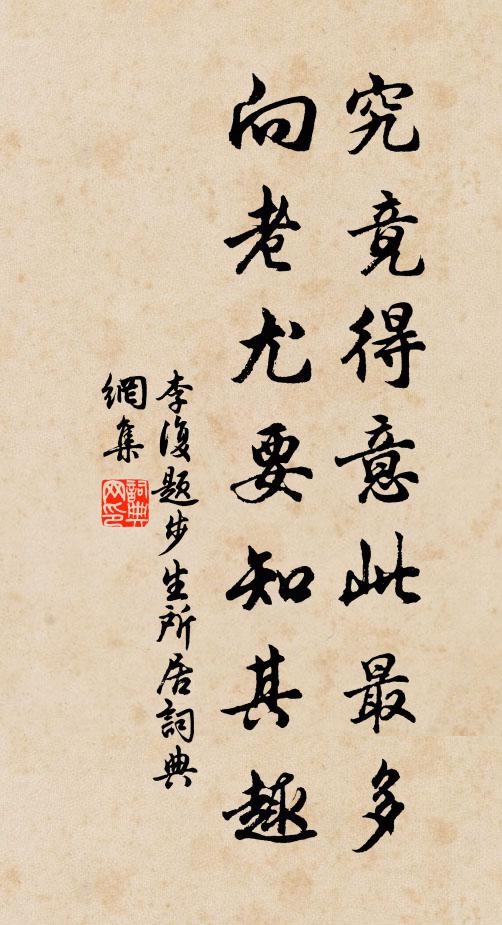 究竟得意此最多
向老尤要知其趣
李復題步生所居詞典
網集
詞典
网印